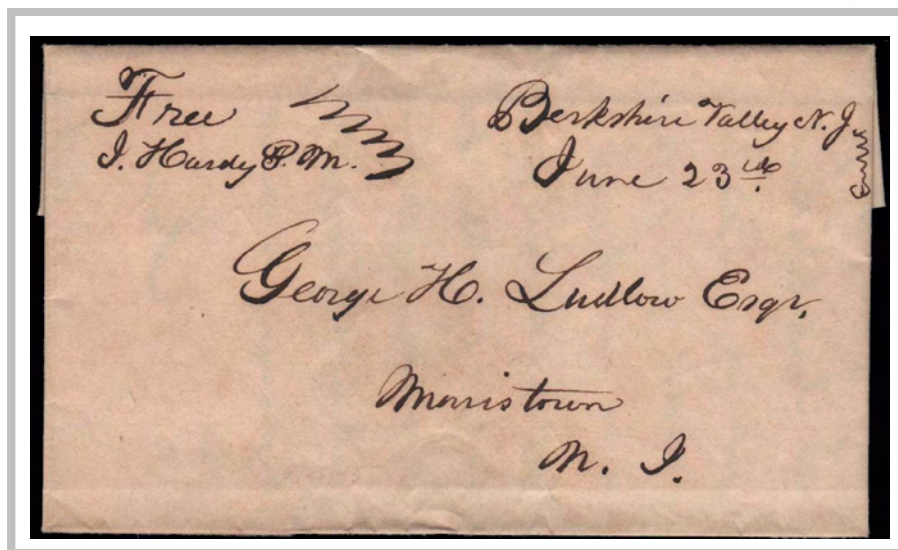 Free
I. Hardy P. M.
Berkshire Valley N. J.
June 23
George H. Ludlow Esqr.
Morristown
N. J.